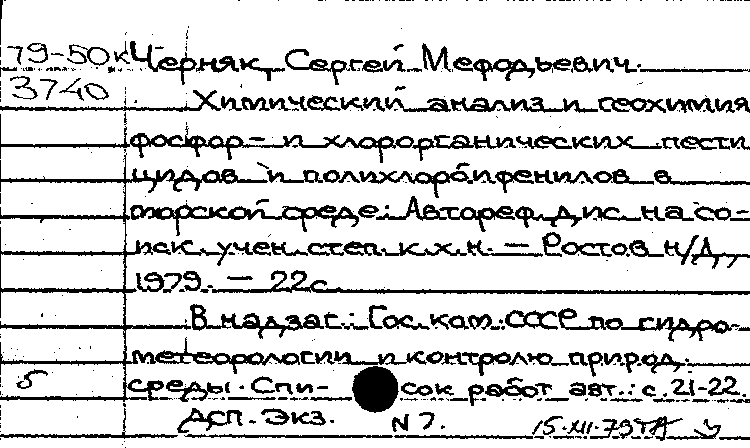 79-50к Черняк, Сергей Мефодьевич.
3740 Химический анализ и геохимия
фосфор- и хлорорганических пести
цидов и полихлорбифенилов в
морской среде: Автореф. дис. на со-
иск. учен. степ. к.х.н. — Ростов н/Д,
1979. — 22 с.
В надзаг.: Гос. ком. СССР по гидро-
метеорологии и контролю природ.
б среды. Спи- сок работ авт.: с. 21-22.
ДСП. Экз. N 7. 15.XII.79